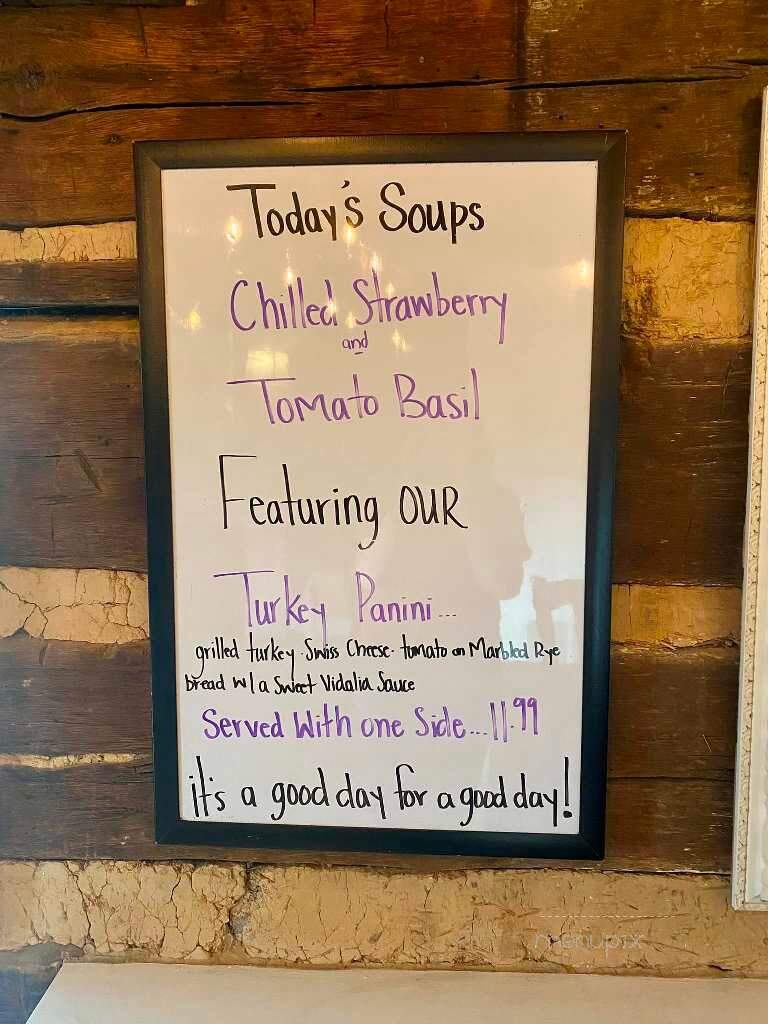 Today's Soups
Chilled Strawberry
and
Tomato Basil
Featuring OUR
Turkey Panini...
grilled turkey · Swiss Cheese · tomato on Marbled Rye
bread w/ a Sweet Vidalia Sauce
Served With one Side...11.99
it's a good day for a good day!
menupix